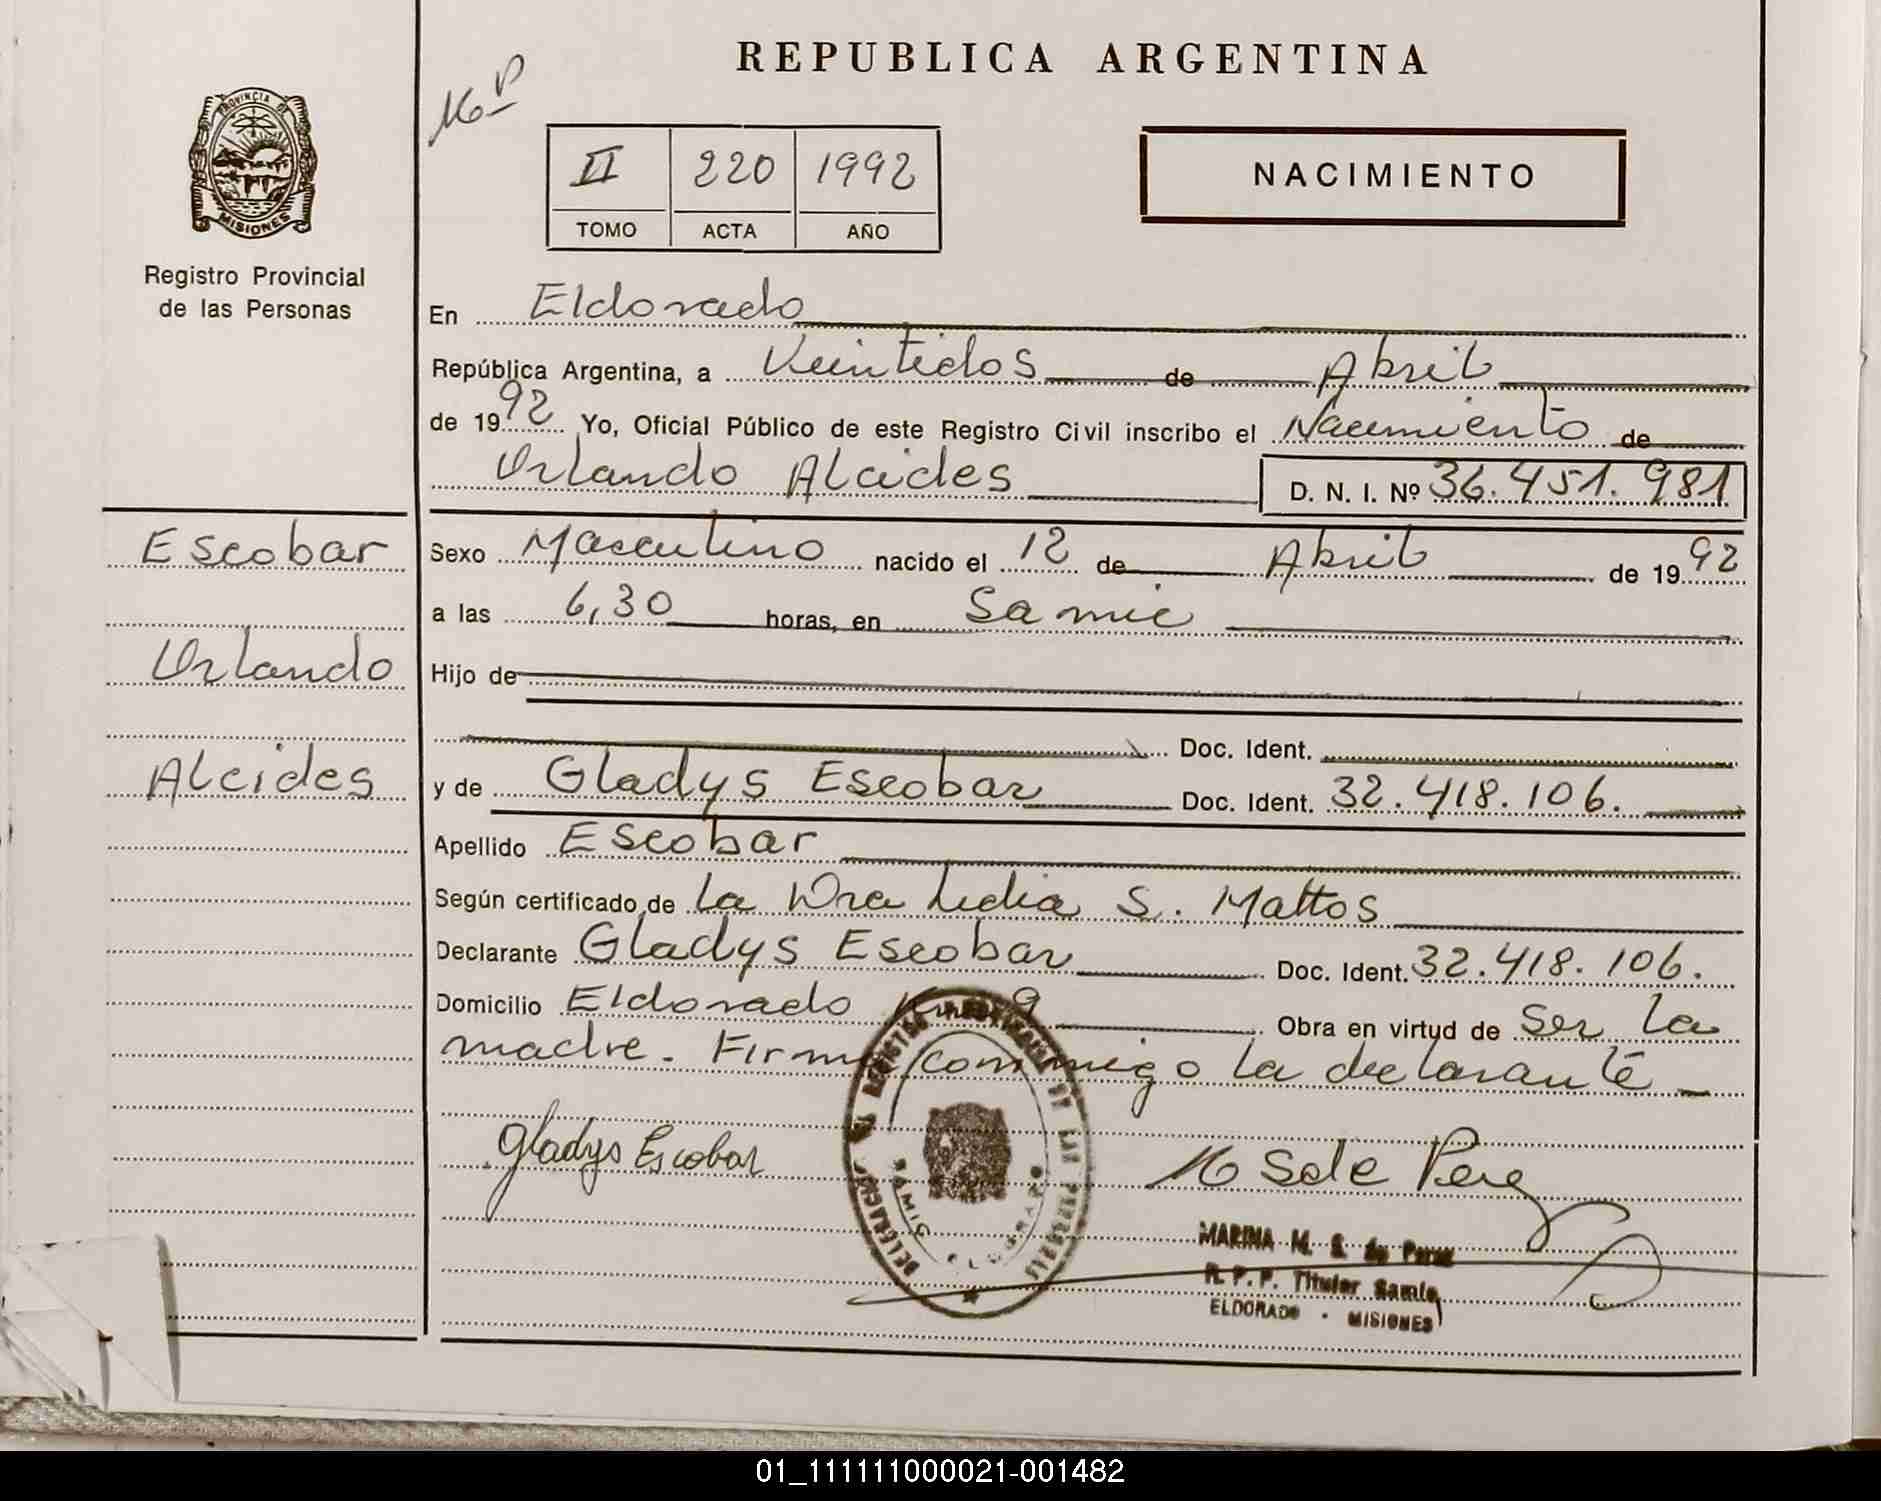 REPUBLICA ARGENTINA
PROVINCIA DE
MISIONES
Registro Provincial
de las Personas
II 220 1992
TOMO ACTA AÑO
NACIMIENTO
En Eldorado
República Argentina, a Veintidos de Abril
de 1992 Yo, Oficial Público de este Registro Civil inscribo el Nacimiento de
Orlando Alcides D. N. I. Nº 36.451.981
Escobar
Orlando
Alcides
Sexo Masculino nacido el 12 de Abril de 1992
a las 6,30 horas, en Samic
Hijo de
Doc. Ident.
y de Gladys Escobar Doc. Ident. 32.418.106.
Apellido Escobar
Según certificado de La Dra Lidia S. Mattos
Declarante Gladys Escobar Doc. Ident. 32.418.106.
Domicilio Eldorado Km 9 Obra en virtud de ser la
madre. Firma conmigo la declarante
Gladys Escobar
DELEGACION REGISTRO PROVINCIAL DE LAS PERSONAS
SAMIC ELDORADO
MARINA M. S. de Perez
R. P. P. Titular Samic
ELDORADO - MISIONES
01_111111000021-001482